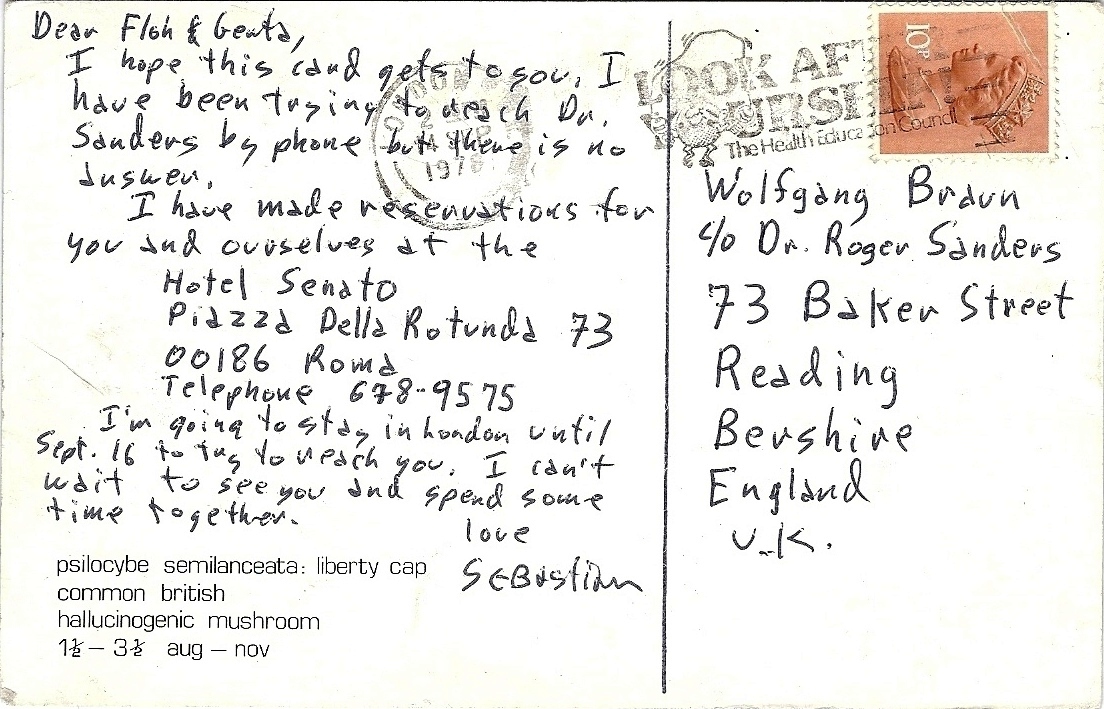 Dear Floh & Genta,
I hope this card gets to you. I
have been trying to reach Dr.
Sanders by phone but there is no
answer.
I have made reservations for
you and ourselves at the
Hotel Senato
Piazza Della Rotunda 73
00186 Roma
Telephone 678-9575
I'm going to stay in London until
Sept. 16 to try to reach you. I can't
wait to see you and spend some
time together.
love
SEBastian
psilocybe semilanceata: liberty cap
common british
hallucinogenic mushroom
1½ – 3½ aug – nov
LOOK AFTER
YOURSELF
The Health Education Council
10P
SEP
197
Wolfgang Braun
c/o Dr. Roger Sanders
73 Baker Street
Reading
Bershire
England
U.K.